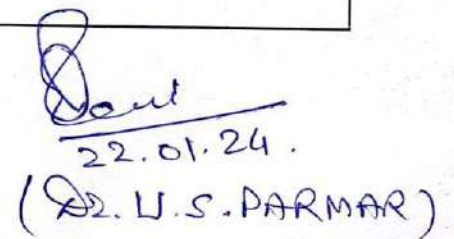 22.01.24.
(Dr. U.S. PARMAR)